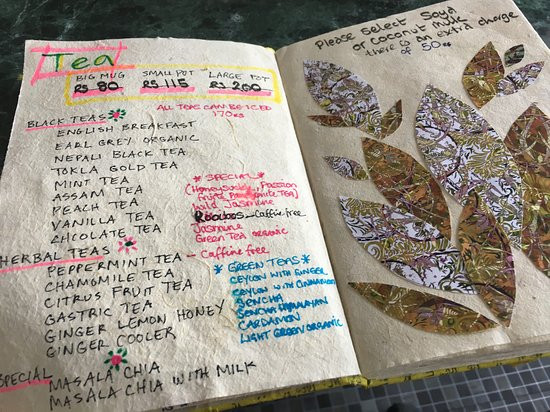 Tea
BIG MUG SMALL POT LARGE POT
RS 80 RS 115 RS 200
ALL TEAS CAN BE ICED
170RS
BLACK TEAS
ENGLISH BREAKFAST
EARL GREY ORGANIC
NEPALI BLACK TEA
TOKLA GOLD TEA
MINT TEA
ASSAM TEA
PEACH TEA
VANILLA TEA
CHCOLATE TEA
* SPECIAL *
Passion
Wild Jasmine
Rooibos - Caffine free
Jasmine
Green Tea ORGANIC
HERBAL TEAS
PEPPERMINT TEA - Caffine free
CHAMOMILE TEA
CITRUS FRUIT TEA
GASTRIC TEA
GINGER LEMON HONEY
GINGER COOLER
* GREEN TEAS *
CEYLON WITH GINGER
CEYLON WITH CINNAMON
SENCHA
SENCHA HIMALAYAN
CARDAMON
LIGHT GREEN ORGANIC
SPECIAL
MASALA CHIA
MASALA CHIA WITH MILK
Please select Soya
or coconut milk
there is an extra charge
of 50 RS